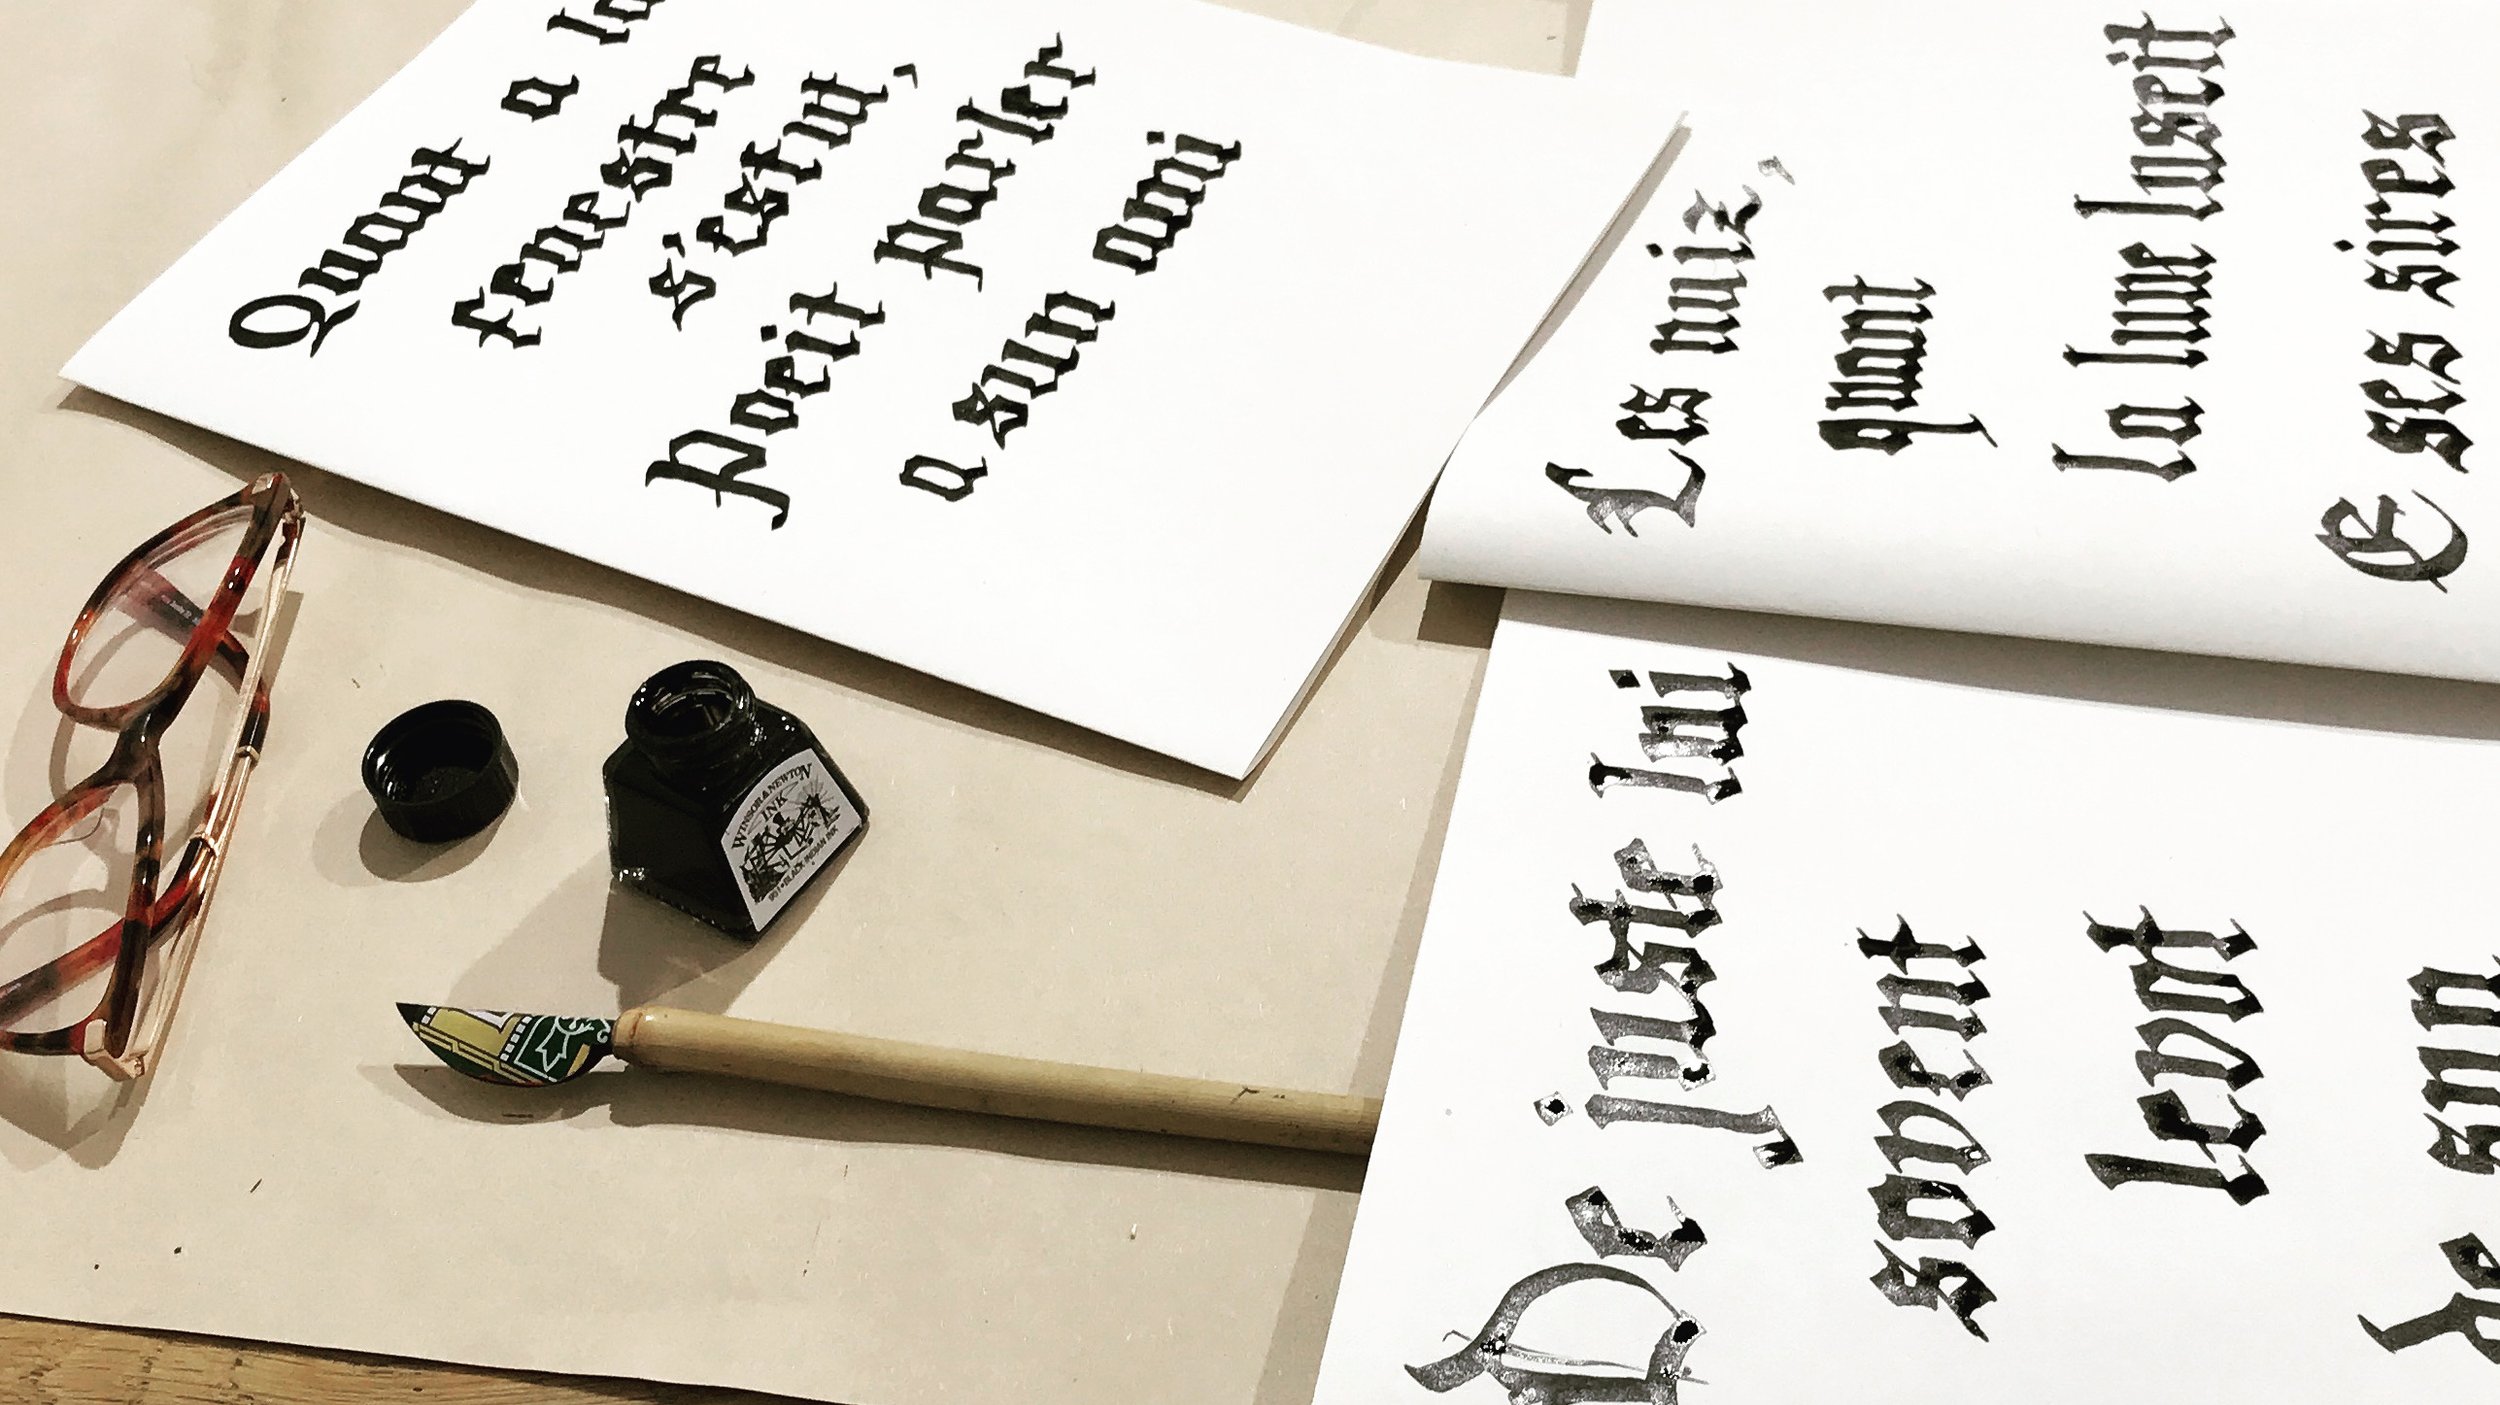 Quant a la
fenestre
s'estut,
Poeit parler
a sun ami
Les nuiz,
quant
la lune luseit
E ses sires
De juste lui
sovent
levot
de sun
WINSOR & NEWTON
INK
951 • BLACK INDIAN INK